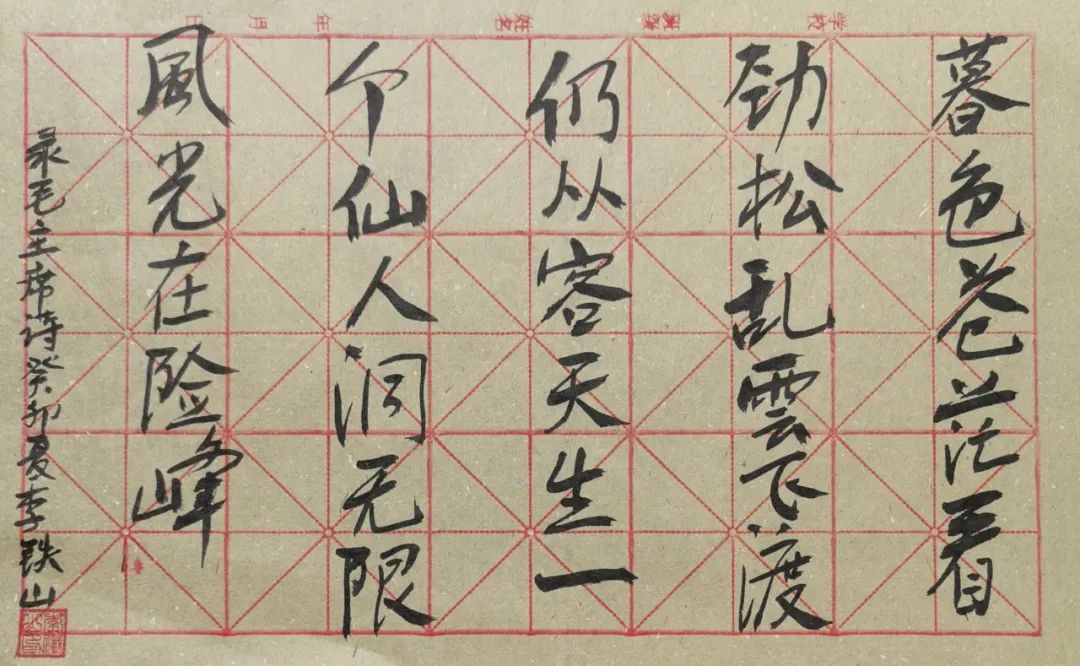 暮色苍茫看
劲松乱雲飞渡
仍从容天生一
个仙人洞无限
風光在险峰
录毛主席诗癸卯夏李铁山
学校 班级 姓名 年 月 日